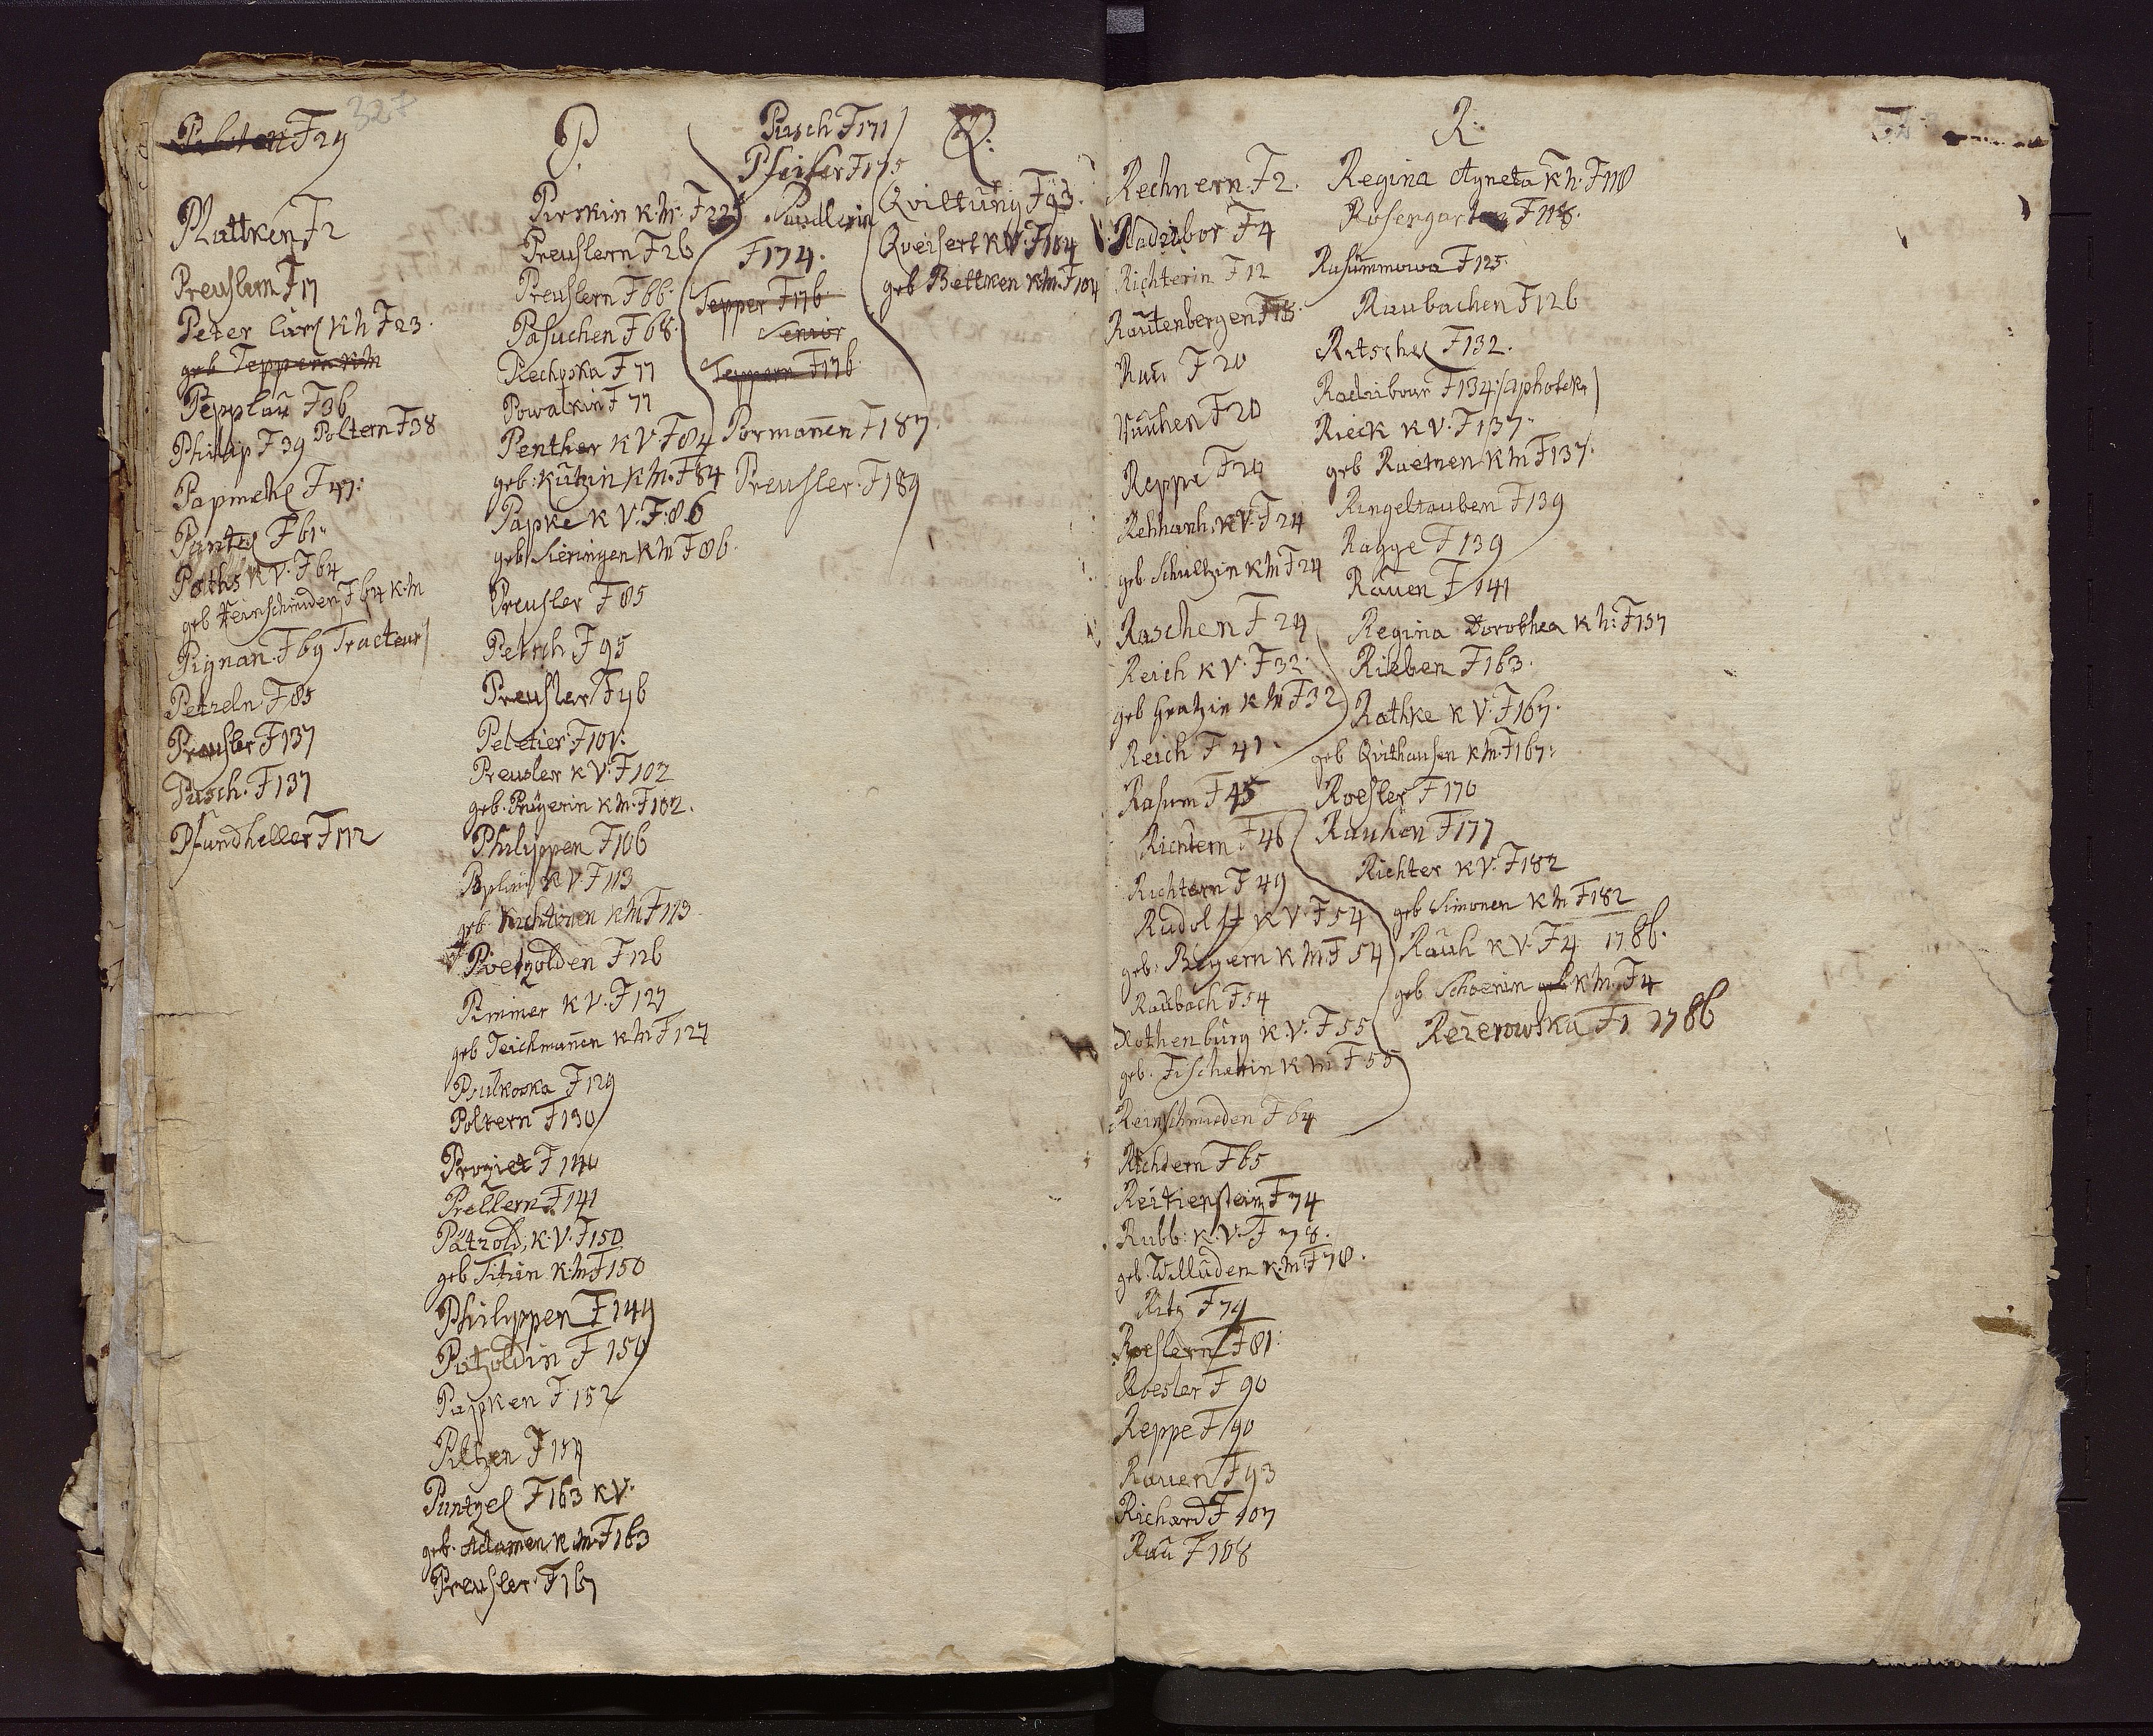 327
F 29
P
Plattken F 2
Preuslern F 17
Peter Carl K h F 23.
geb Teppern K M
Pepplau F 36
Philip F 39 Poltern F 38
Papmehl F 47.
Pantzel F 61.
Paths K V. F 64
geb Reinschmiden F 64 K. M
Pignan. F 69 Tracteur
Petreln. F 85
Preusler F 137
Pusch. F 137
Pfundheller F 172
Pirskin K. M. F 22
Preuslern F 26
Preuslern F 66.
Pasuchen F 68.
Powalkin F 77
Penther K V. F 84
geb: Kutzin K M. F 84
Papke K V. F. 86
geb Sieringen K M F 86.
Preusler F 85
Petrch F 95
Preusler F 96
Peletier F 101.
Preusler K V. F 102
geb. Prügerin K M. F 102.
Philippen F 106
K V. F 113
geb. K M F 113.
Pimmer K V. F 127
geb Teichmañen K M F 127
Psulkoska F 129
Poltern F 130
F 140
Prellern F. 141
Pätzold, K. V. F 150
geb Titzin K M F 150
Philippen F 149
Patzoldin F 150
Papken F 152
Piltzen F 159
Puntzel F 163 K V.
geb. Adamen K M. F 163
Preusler. F 167
Pusch F 171
Pfeifer F 175
F 174.
Tepper F 176
Senior
Teppern F 176
Pormañen F 187.
Preusler. F 189
Q:
Qviltung F 93.
Qveisert K V. F 104
geb Bettken K M. F 104
R:
Rechnern. F 2.
Radzibor F 4
Richterin F 12
Rautenbergen F 18.
Rau F 20
F 20
Reppe F 20
Rehhanh. K V. F 24
geb. Schultzin K M F 24
Raschen F 29
Reich K V. F 32.
geb Gratzin K M F 32
Reich F 41.
Rasum F 45
Richtern F 46
Richtern F 49
Rudolff K V. F 54
geb: Beyern K M F 54
Raubach F 54
Rothenburg K. V. F 55
geb. Fischerin K M F 55
Reinschmieden F 64
Richtern F 65
Reitienstein F 74
Rubb: K. V. F 78.
geb. Willuden K. M. F 78.
Ritz F 79
Roeslern F 81.
Roesler F 90
Reppe F 90
Rauen F 93
Richard F 107
Rau F 108
Regina Agneta K h. F 110
Rosengarten F 118.
Rasummowa F 125.
Raubachen F 126
Ritschel F 132.
Radzibour F 134. (Aphotek)
Rieck K V. F 137.
geb Raetzen K M F 137.
Ringeltauben F 139
Ragge F 139
Rauen F 141
Regina Dorothea K h: F 157
Rieben F 163.
Rathke K V. F 167.
geb Qvithausen K M. F 167.
Roesler F 170
Rauhen F 177
Richter K V. F 182
geb Simonen K M F 182
Rauh K V. F 4 1786.
geb Schoenin geb K M. F 4
Rezerowska F 1 1786